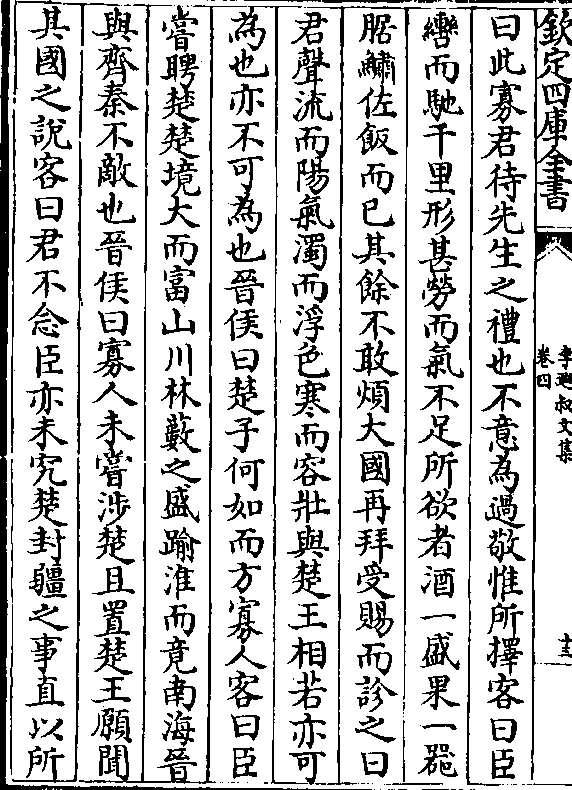 欽定四庫全書
李遐叔文集
卷四
十三
曰此寡君待先生之禮也不意為過敬惟所擇客曰臣
轡而馳千里形甚勞而氣不足所欲者酒一盛果一器
腒鱐佐飯而已其餘不敢煩大國再拜受賜而診之曰
君聲流而陽氣濁而浮色寒而容壯與楚王相若亦可
為也亦不可為也晉侯曰楚子何如而方寡人客曰臣
嘗聘楚楚境大而富山川林藪之盛踰淮而竟南海晉
與齊秦不敵也晉侯曰寡人未嘗涉楚且置楚王願聞
其國之說客曰君不念臣亦未究楚封疆之事直以所